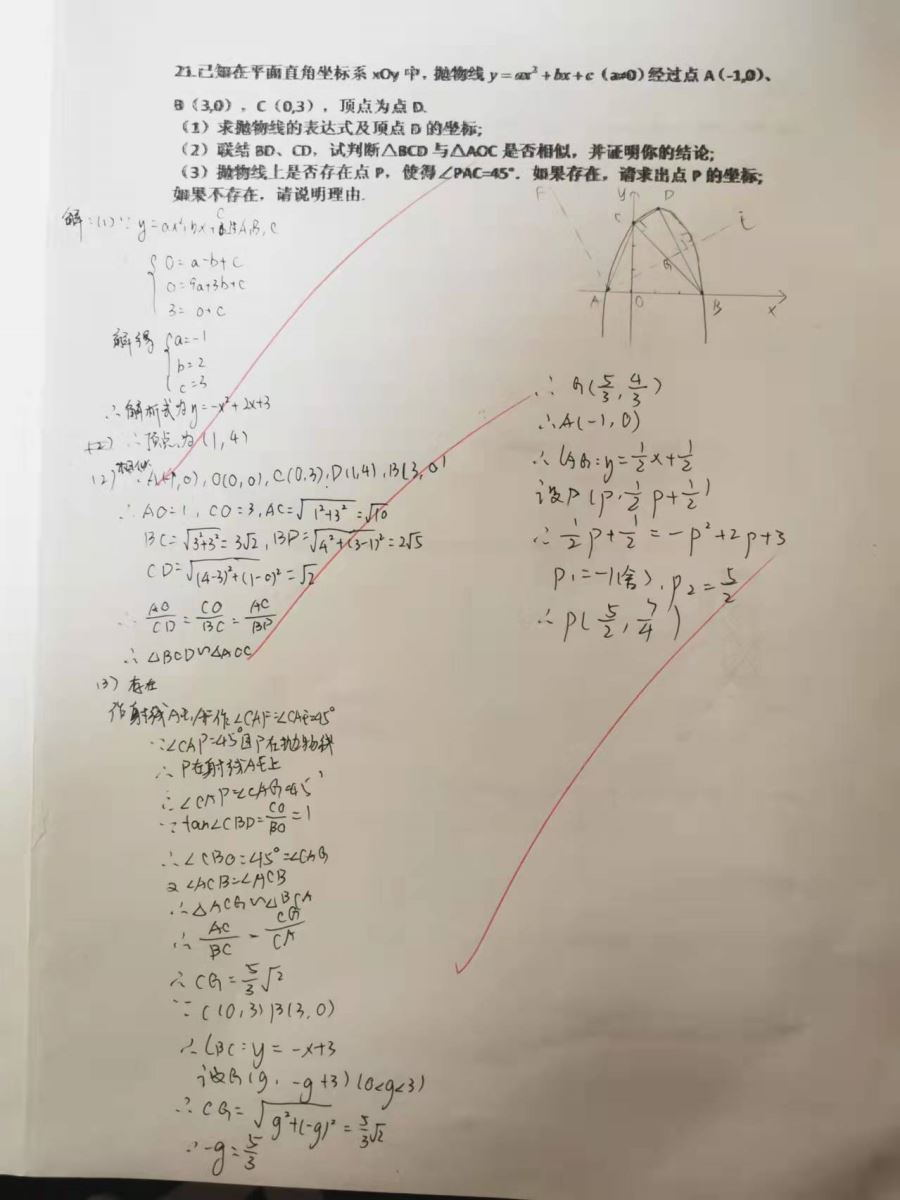 21.已知在平面直角坐标系 xOy 中，抛物线 y=ax²+bx+c（a≠0）经过点 A（-1,0）、
B（3,0），C（0,3），顶点为点 D.
（1）求抛物线的表达式及顶点 D 的坐标;
（2）联结 BD、CD，试判断△BCD 与△AOC 是否相似，并证明你的结论;
（3）抛物线上是否存在点 P，使得∠PAC=45°．如果存在，请求出点 P 的坐标;
如果不存在，请说明理由.
解:(1)∵ y=ax²+bx+c 过A,B,C
0=a-b+c
0=9a+3b+c
3=0+c
解得 a=-1
b=2
c=3
∴解析式为y=-x²+2x+3
∴顶点为(1,4)
(2)相似∵A(-1,0),O(0,0),C(0,3),D(1,4),B(3,0)
∴AO=1, CO=3, AC=√1²+3²=√10
BC=√3²+3²=3√2, BD=√4²+(3-1)²=2√5
CD=√(4-3)²+(1-0)²=√2
∴ AO/CD=CO/BC=AC/BD
∴△BCD∽△AOC
(3) 存在
作射线AE,AF作∠CAF=∠CAE=45°
∵∠CAP=45°且P在抛物线
∴P在射线AE上
∴∠CAP=∠CAG=45°
∵tan∠CBD=CO/BO=1
∴∠CBO=45°=∠CAG
又∠ACB=∠ACB
∴△ACG∽△BCA
∴ AC/BC=CG/CA
∴CG=5/3√2
∵C(0,3)B(3,0)
∴lBC:y=-x+3
设G(g,-g+3)(0<g<3)
∴CG=√g²+(-g)²=5/3√2
∴g=5/3
F
y
D
C
E
G
P
A
O
B
x
∴G(5/3,4/3)
∴A(-1,0)
∴lAG:y=1/2x+1/2
设P(p,1/2p+1/2)
∴1/2p+1/2=-p²+2p+3
p₁=-1(舍),p₂=5/2
∴P(5/2,7/4)